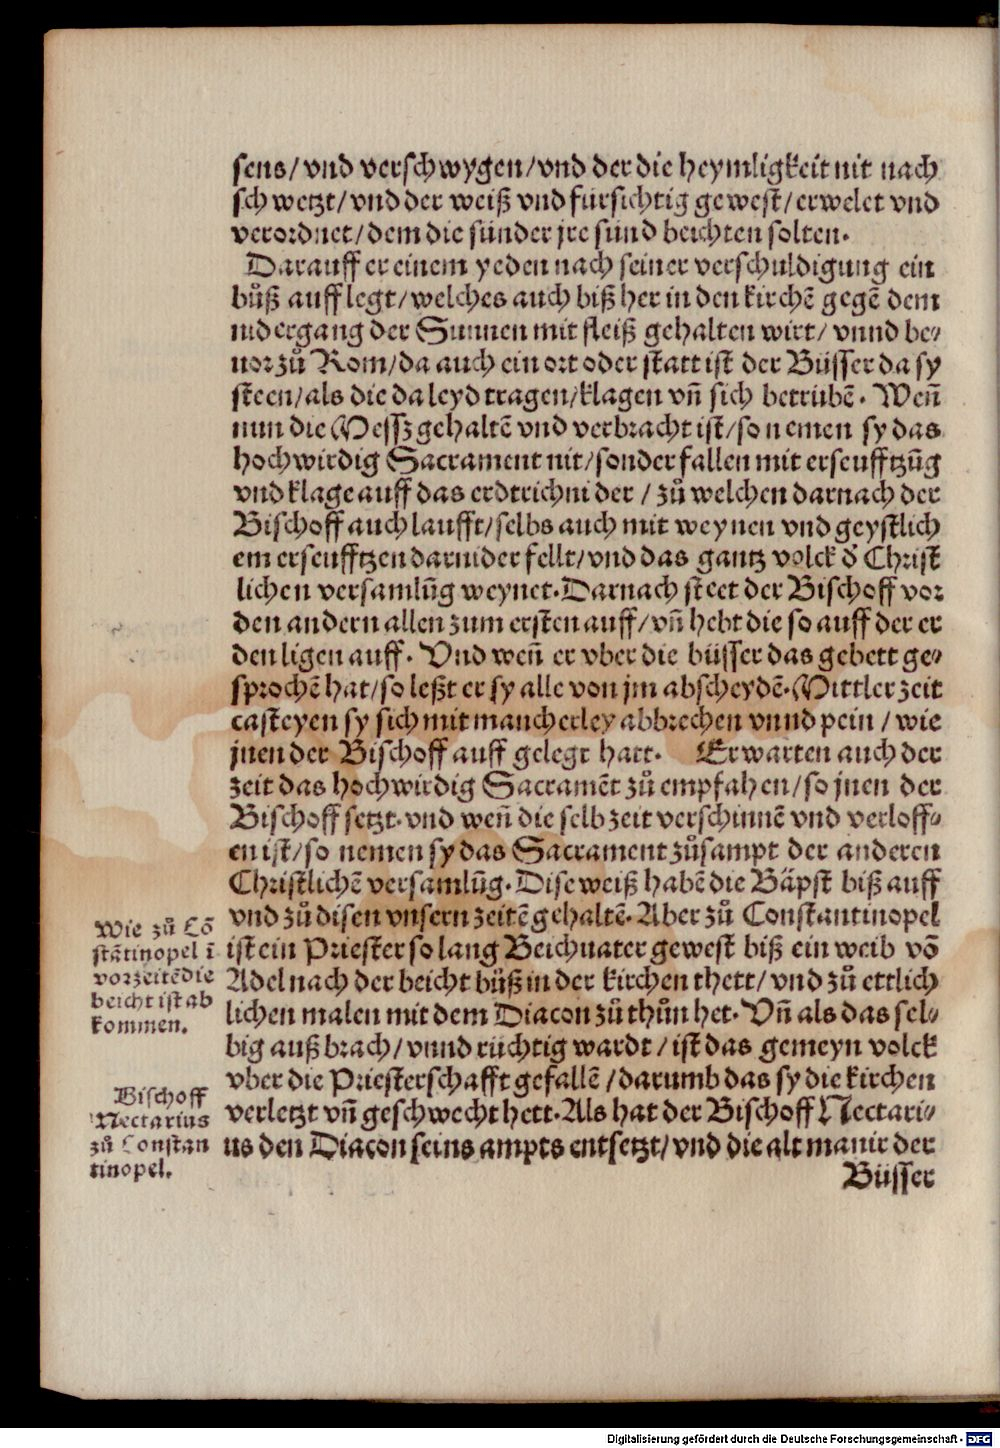 sens/ vnd verschwygen/vnd der die heymligkeit nit nach
schwetzt/ vnd der weiß vnd fursichtig gewest/ erwelet vnd
verordnet/ dem die sünder jre sünd beichten solten.
Darauff er einem yeden nach seiner verschuldigung ein
bůß auff legt/ welches auch biß her in den kirchē gegē dem
nidergang der Sunnen mit fleiß gehalten wirt/ vnnd be⸗
uor zů Rom/ da auch ein ort oder statt ist der Büsser da sy
steen/ als die da leyd tragen/ klagen vñ sich betrübē. Weñ
nun die Messz gehaltē vnd verbracht ist/ so nemen sy das
hochwirdig Sacrament nit/ sonder fallen mit erseufftzūg
vnd klage auff das erdtrich nider / zů welchen darnach der
Bischoff auch laufft/ selbs auch mit weynen vnd geystlich
em erseufftzen darnider fellt/ vnd das gantz volck d̕ Christ
lichen versamlūg weynet. Darnach steet der Bischoff vor
den andern allen zum ersten auff/ vñ hebt die so auff der er
den ligen auff. Vnd weñ er vber die büsser das gebett ge⸗
sprochē hat/ so leßt er sy alle von jm abscheydē. Mittler zeit
casteyen sy sich mit mancherley abbrechen vnnd pein / wie
jnen der Bischoff auff gelegt hatt. Erwarten auch der
zeit das hochwirdig Sacramēt zů empfahen/ so jnen der
Bischoff setzt. vnd weñ die selb zeit verschinnē vnd verloff⸗
en ist/ so nemen sy das Sacrament zůsampt der anderen
Christlichē versamlūg. Dise weiß habē die Bäpst biß auff
vnd zů disen vnsern zeitē gehaltē. Aber zů Constantinopel
ist ein Priester so lang Beichuater gewest biß ein weib vō
Adel nach der beicht bůß in der kirchen thett/ vnd zů ettlich
lichen malen mit dem Diacon zů thůn het. Vñ als das sel⸗
big auß brach/ vnnd rüchtig wardt / ist das gemeyn volck
vber die Priesterschafft gefallē / darumb das sy die kirchen
verletzt vñ geschwecht hett. Als hat der Bischoff Nectari⸗
us den Diacon seins ampts entsetzt/ vnd die alt manir der
Büsser
Wie zů Cō
stātinopel ī
vorzeitē die
beicht ist ab
kommen.
Bischoff
Nectarius
zů Constan
tinopel.
Digitalisierung gefördert durch die Deutsche Forschungsgemeinschaft - DFG